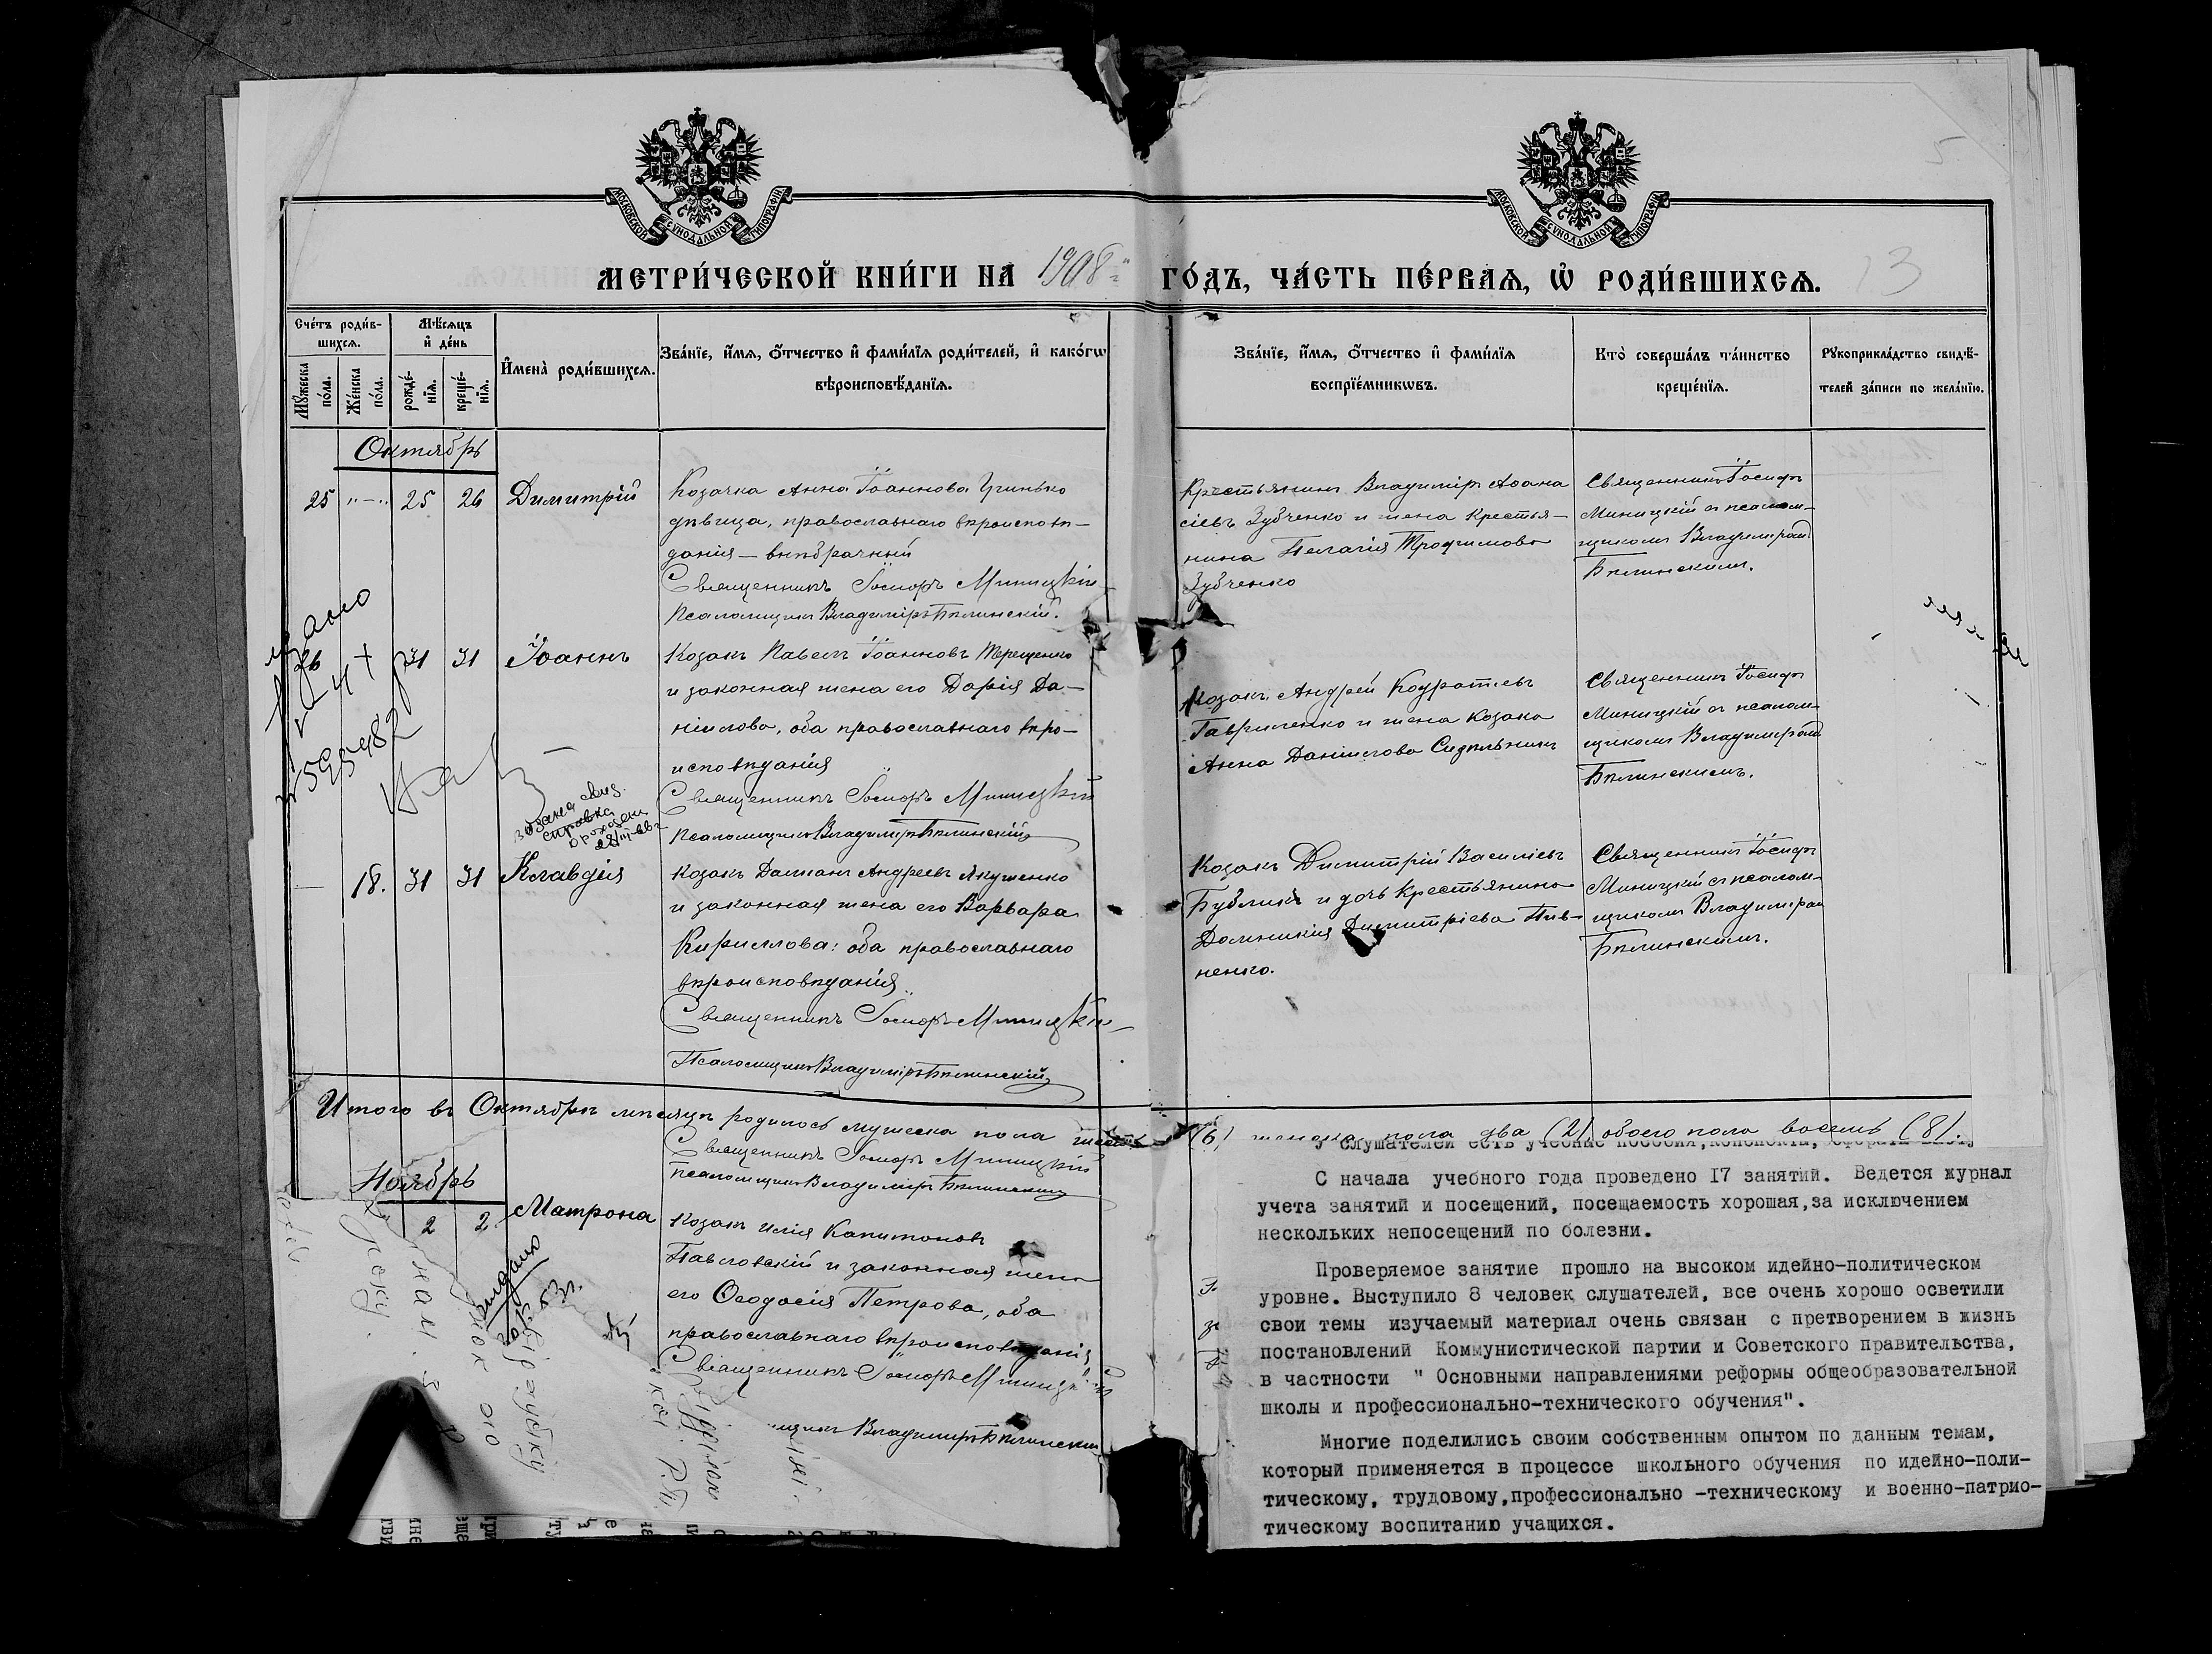 МОСКОВСКОЙ СѴНОДАЛЬНОЙ ТИПОГРАФІИ
МОСКОВСКОЙ СѴНОДАЛЬНОЙ ТИПОГРАФІИ
МЕТРИ́ЧЕСКОЙ КНИ́ГИ НА 1908 ГО́ДЪ, ЧА́СТЬ ПЕ́РВАѦ, Ѽ РОДИ́ВШИХСѦ. 13
Сче́тъ роди́в-
шихсѧ.
Мꙋ́жеска по́ла.
Же́нска по́ла.
Мѣ́сѧцъ
и҆ де́нь
рожде́-нїѧ.
креще́-нїѧ.
И҆мена̀ роди́вшихсѧ.
Зва́нїе, и҆́мѧ, ѻ҆́тчество и҆ фами́лїѧ роди́телей, и҆ како́гѡ
вѣроисповѣ́данїѧ.
Зва́нїе, и҆́мѧ, ѻ҆́тчество и҆ фами́лїѧ
воспрїе́мникѡвъ.
Кто̀ соверша́лъ та́инство
креще́нїѧ.
Рꙋкоприкла́дство свидѣ́-
телей за́писи по жела́нїю.
Октябрь
25 "-" 25 26 Димитрій
Козачка Анна Іоаннова Гринько
дѣвица, православнаго вѣроисповѣ-
данія — внѣбрачный
Священникъ Іосифъ Миницкій
Псаломщикъ Владиміръ Бѣлинскій.
Крестьянинъ Владиміръ Аѳана
сіевъ Зубченко и жена крестья-
нина Пелагія Трофимова
Зубченко
Священникъ Іосифъ
Миницкій съ псалом-
щикомъ Владиміромъ
Бѣлинскимъ.
26 31 31 Іоаннъ
Козакъ Павелъ Іоанновъ Терещенко
и законная жена его Дарія Да-
ніилова, оба православнаго вѣро-
исповѣданія
Священникъ Іосифъ Миницкій
Псаломщикъ Владиміръ Бѣлинскій
Козакъ Андрей Кодратіевъ
Гавриленко и жена козака
Анна Даніилова Сидѣльникъ
Священникъ Іосифъ
Миницкій съ псалом-
щикомъ Владиміромъ
Бѣлинскимъ.
справка
о рожден
— 18. 31 31 Клавдія
Козакъ Даміанъ Андреевъ Якушенко
и законная жена его Варвара
Кириллова: оба православнаго
вѣроисповѣданія
Священникъ Іосифъ Миницкій
Псаломщикъ Владиміръ Бѣлинскій
Козакъ Димитрій Василіевъ
Бублик и дочь крестьянина
Домникія Димитріева Пив-
ненко.
Священникъ Іосифъ
Миницкій съ псалом-
щикомъ Владиміромъ
Бѣлинскимъ.
Итого въ Октябрѣ мѣсяцѣ родилось мужеска пола шесть (6) женска пола два (2) обоего пола восемь (8).
Священникъ Іосифъ Миницкій
Псаломщикъ Владиміръ Бѣлинскій
Ноябрь
2 2 Матрона
Козакъ Илія Капитоновъ
Павловскій и законная жена
его Ѳеодосія Петрова, оба
православнаго вѣроисповѣданія
Священникъ Іосифъ Миницкій
щикъ Владиміръ Бѣлинскій
У слушателей есть учебные пособия, конспекты,
С начала учебного года проведено 17 занятий. Ведется журнал
учета занятий и посещений, посещаемость хорошая,за исключением
нескольких непосещений по болезни.
Проверяемое занятие прошло на высоком идейно-политическом
уровне. Выступило 8 человек слушателей, все очень хорошо осветили
свои темы изучаемый материал очень связан с претворением в жизнь
постановлений Коммунистической партии и Советского правительства,
в частности " Основными направлениями реформы общеобразовательной
школы и профессионально-технического обучения".
Многие поделились своим собственным опытом по данным темам,
который применяется в процессе школьного обучения по идейно-поли-
тическому, трудовому,профессионально -техническому и военно-патрио-
тическому воспитанию учащихся.